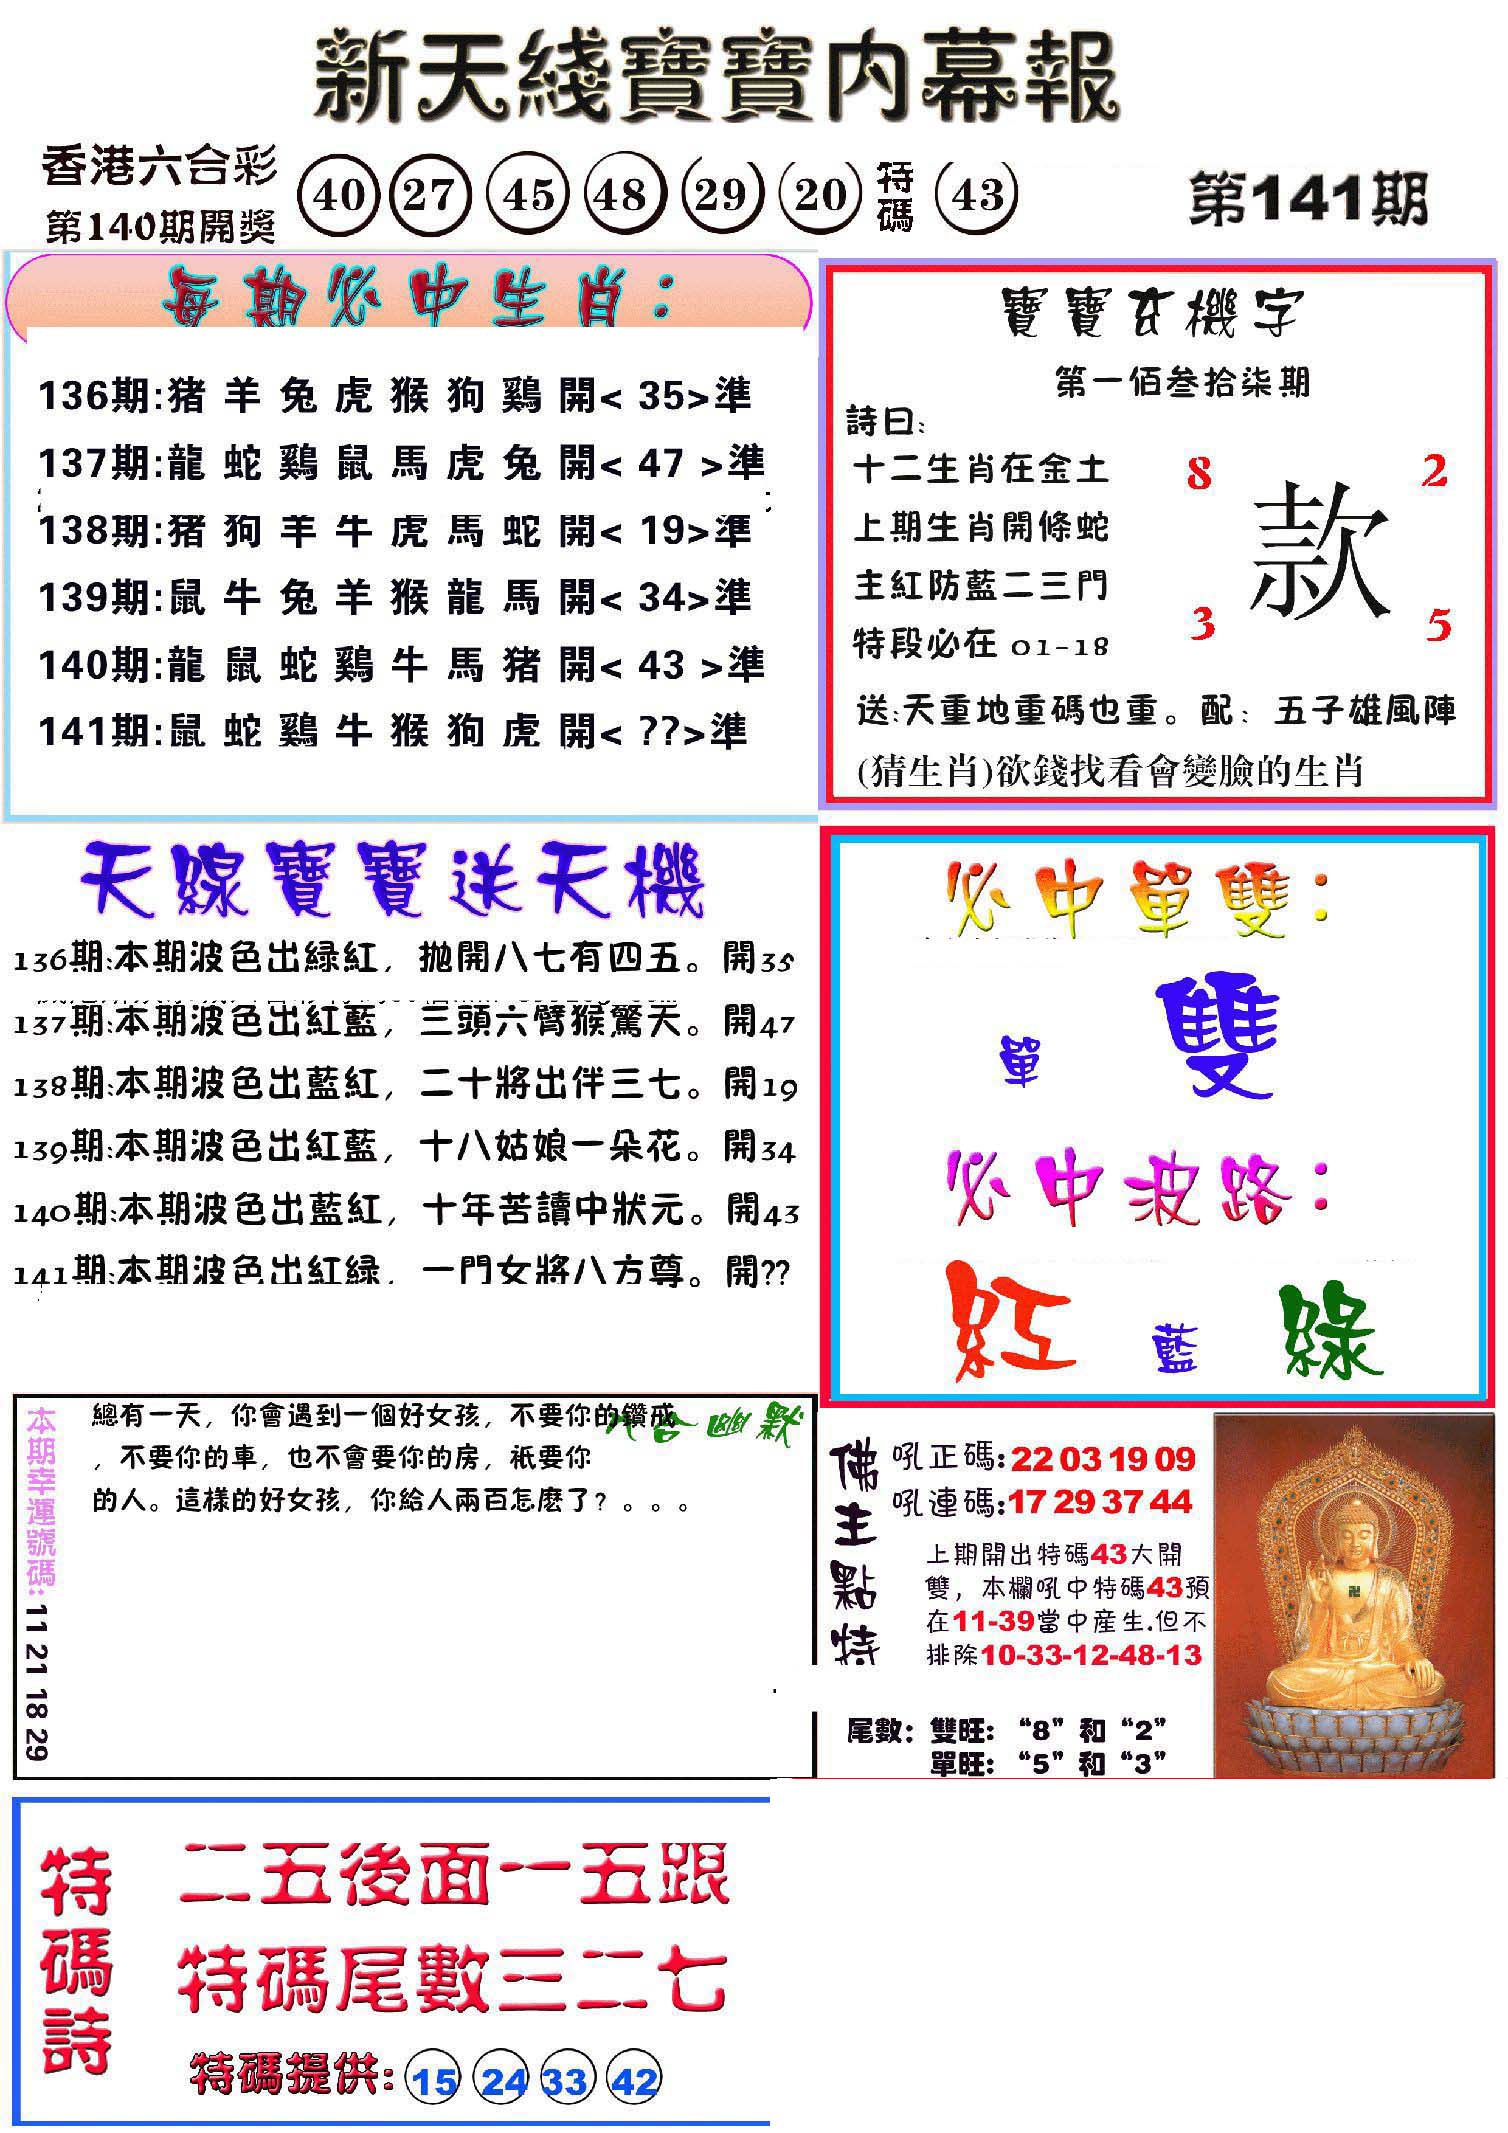 新天綫寶寶内幕報
香港六合彩
第140期開獎
40 27 45 48 29 20 特碼 43
第141期
每期必中生肖:
136期:猪羊兔虎猴狗鷄開< 35>準
137期:龍蛇鷄鼠馬虎兔開< 47 >準
138期:猪狗羊牛虎馬蛇開< 19>準
139期:鼠牛兔羊猴龍馬開< 34>準
140期:龍鼠蛇鷄牛馬猪開< 43 >準
141期:鼠蛇鷄牛猴狗虎開< ??>準
寶寶玄機字
第一佰叁拾柒期
詩曰:
十二生肖在金土
上期生肖開條蛇
主紅防藍二三門
特段必在 01-18
8 2
款
3 5
送:天重地重碼也重。配:五子雄風陣
(猜生肖)欲錢找看會變臉的生肖
天線寶寶送天機
136期:本期波色出綠紅，拋開八七有四五。開35
137期:本期波色出紅藍，三頭六臂猴驚天。開47
138期:本期波色出藍紅，二十將出伴三七。開19
139期:本期波色出紅藍，十八姑娘一朵花。開34
140期:本期波色出藍紅，十年苦讀中狀元。開43
141期:本期波色出紅绿，一門女將八方尊。開??
必中單雙:
單 雙
必中波路:
紅 藍 綠
本期幸運號碼:11 21 18 29
六合幽默
總有一天，你會遇到一個好女孩，不要你的鑽戒
，不要你的車，也不會要你的房，衹要你
的人。這樣的好女孩，你給人兩百怎麼了？。。。
佛主點特
吼正碼:22 03 19 09
吼連碼:17 29 37 44
上期開出特碼43大開
雙，本欄吼中特碼43預
在11-39當中産生.但不
排除10-33-12-48-13
尾數：雙旺：“8”和“2”
單旺：“5”和“3”
特碼詩
二五後面一五跟
特碼尾數三二七
特碼提供:15 24 33 42